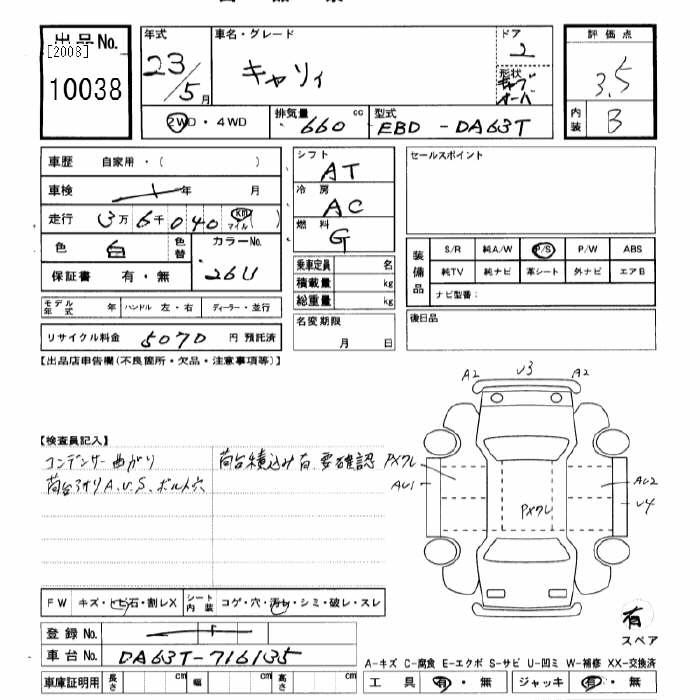 出品No.
[2008]
10038
年式
23/5月
車名・グレード
キャリィ
ドア
2
形状
キャブオーバ
評価点
3.5
内装
B
2WD・4WD
排気量
660 cc
型式
EBD-DA63T
車歴 自家用・( )
車検 年 月
走行 3万6千040 km マイル ( )
色 白 色替
カラーNo.
26U
保証書 有・無
モデル年式 年 ハンドル 左・右 ディーラー・並行
リサイクル料金 5070 円 預託済
シフト
AT
冷房
AC
燃料
G
乗車定員 名
積載量 kg
総重量 kg
名変期限
月 日
セールスポイント
装備品
S/R 純A/W P/S P/W ABS
純TV 純ナビ 革シート 外ナビ エアB
ナビ型番:
後日品
【出品店申告欄(不良箇所・欠品・注意事項等)】
【検査員記入】
コンデンサー曲がり
荷台積込み有 要確認
荷台ヨオリ A.U.S. ボルト穴
A2 U3 A2
PXワレ
AU1
AU2
U4
PXワレ
FW キズ・トビ石・割レX
シート内装 コゲ・穴・汚レ・シミ・破レ・スレ
登録No.
車台No. DA63T-716135
車庫証明用 長さ cm 幅 cm 高さ cm
有
スペア
A-キズ C-腐食 E-エクボ S-サビ U-凹ミ W-補修 XX-交換済
工具 有・無 ジャッキ 有・無